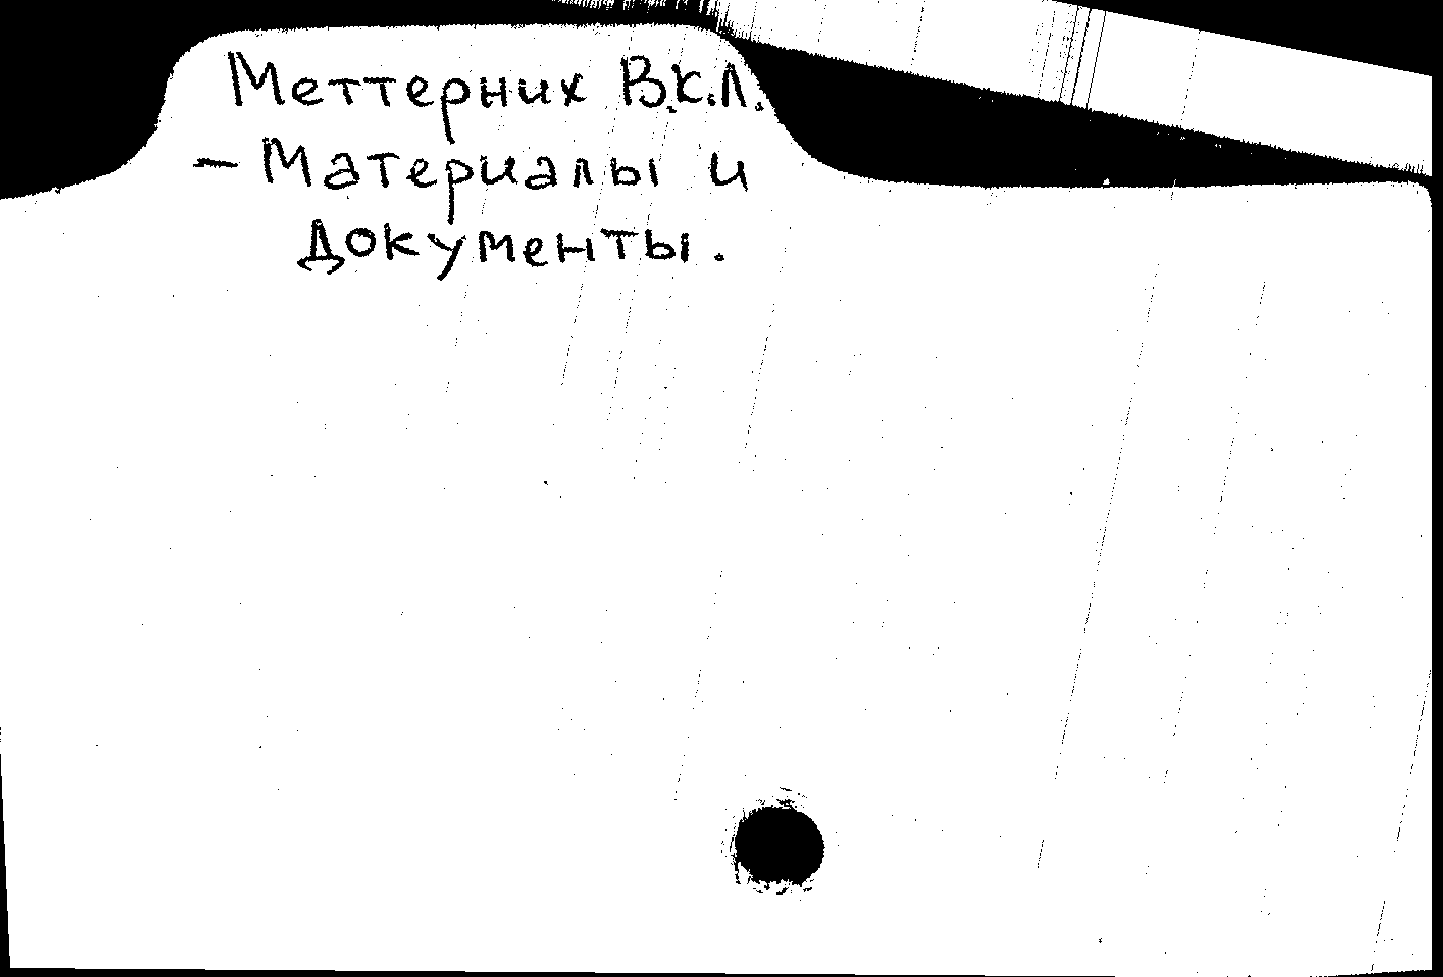 Меттерних В.К.Л.
— Материалы и
документы.